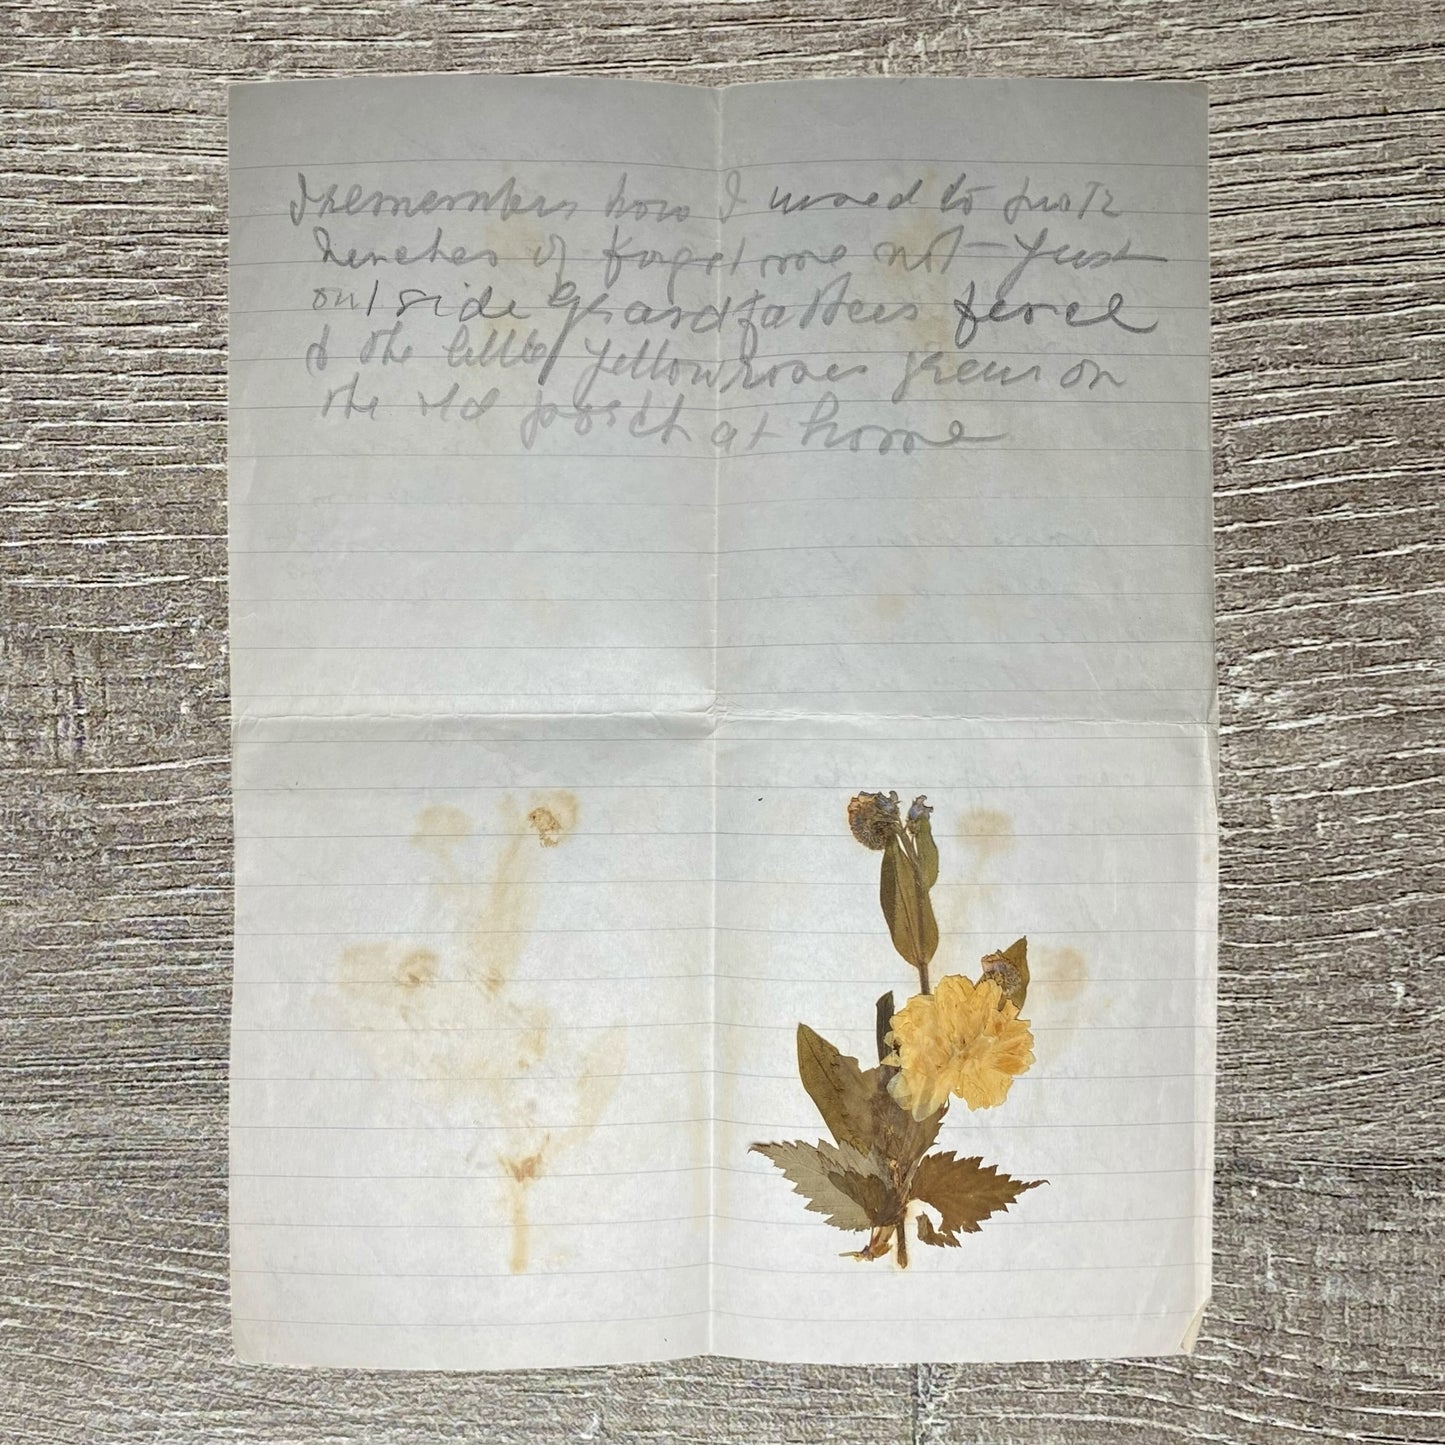 I remember how I used to pick
bunches of forget me not - Just
outside Grandfathers fence
& the little yellow roses grew on
the old porch at home